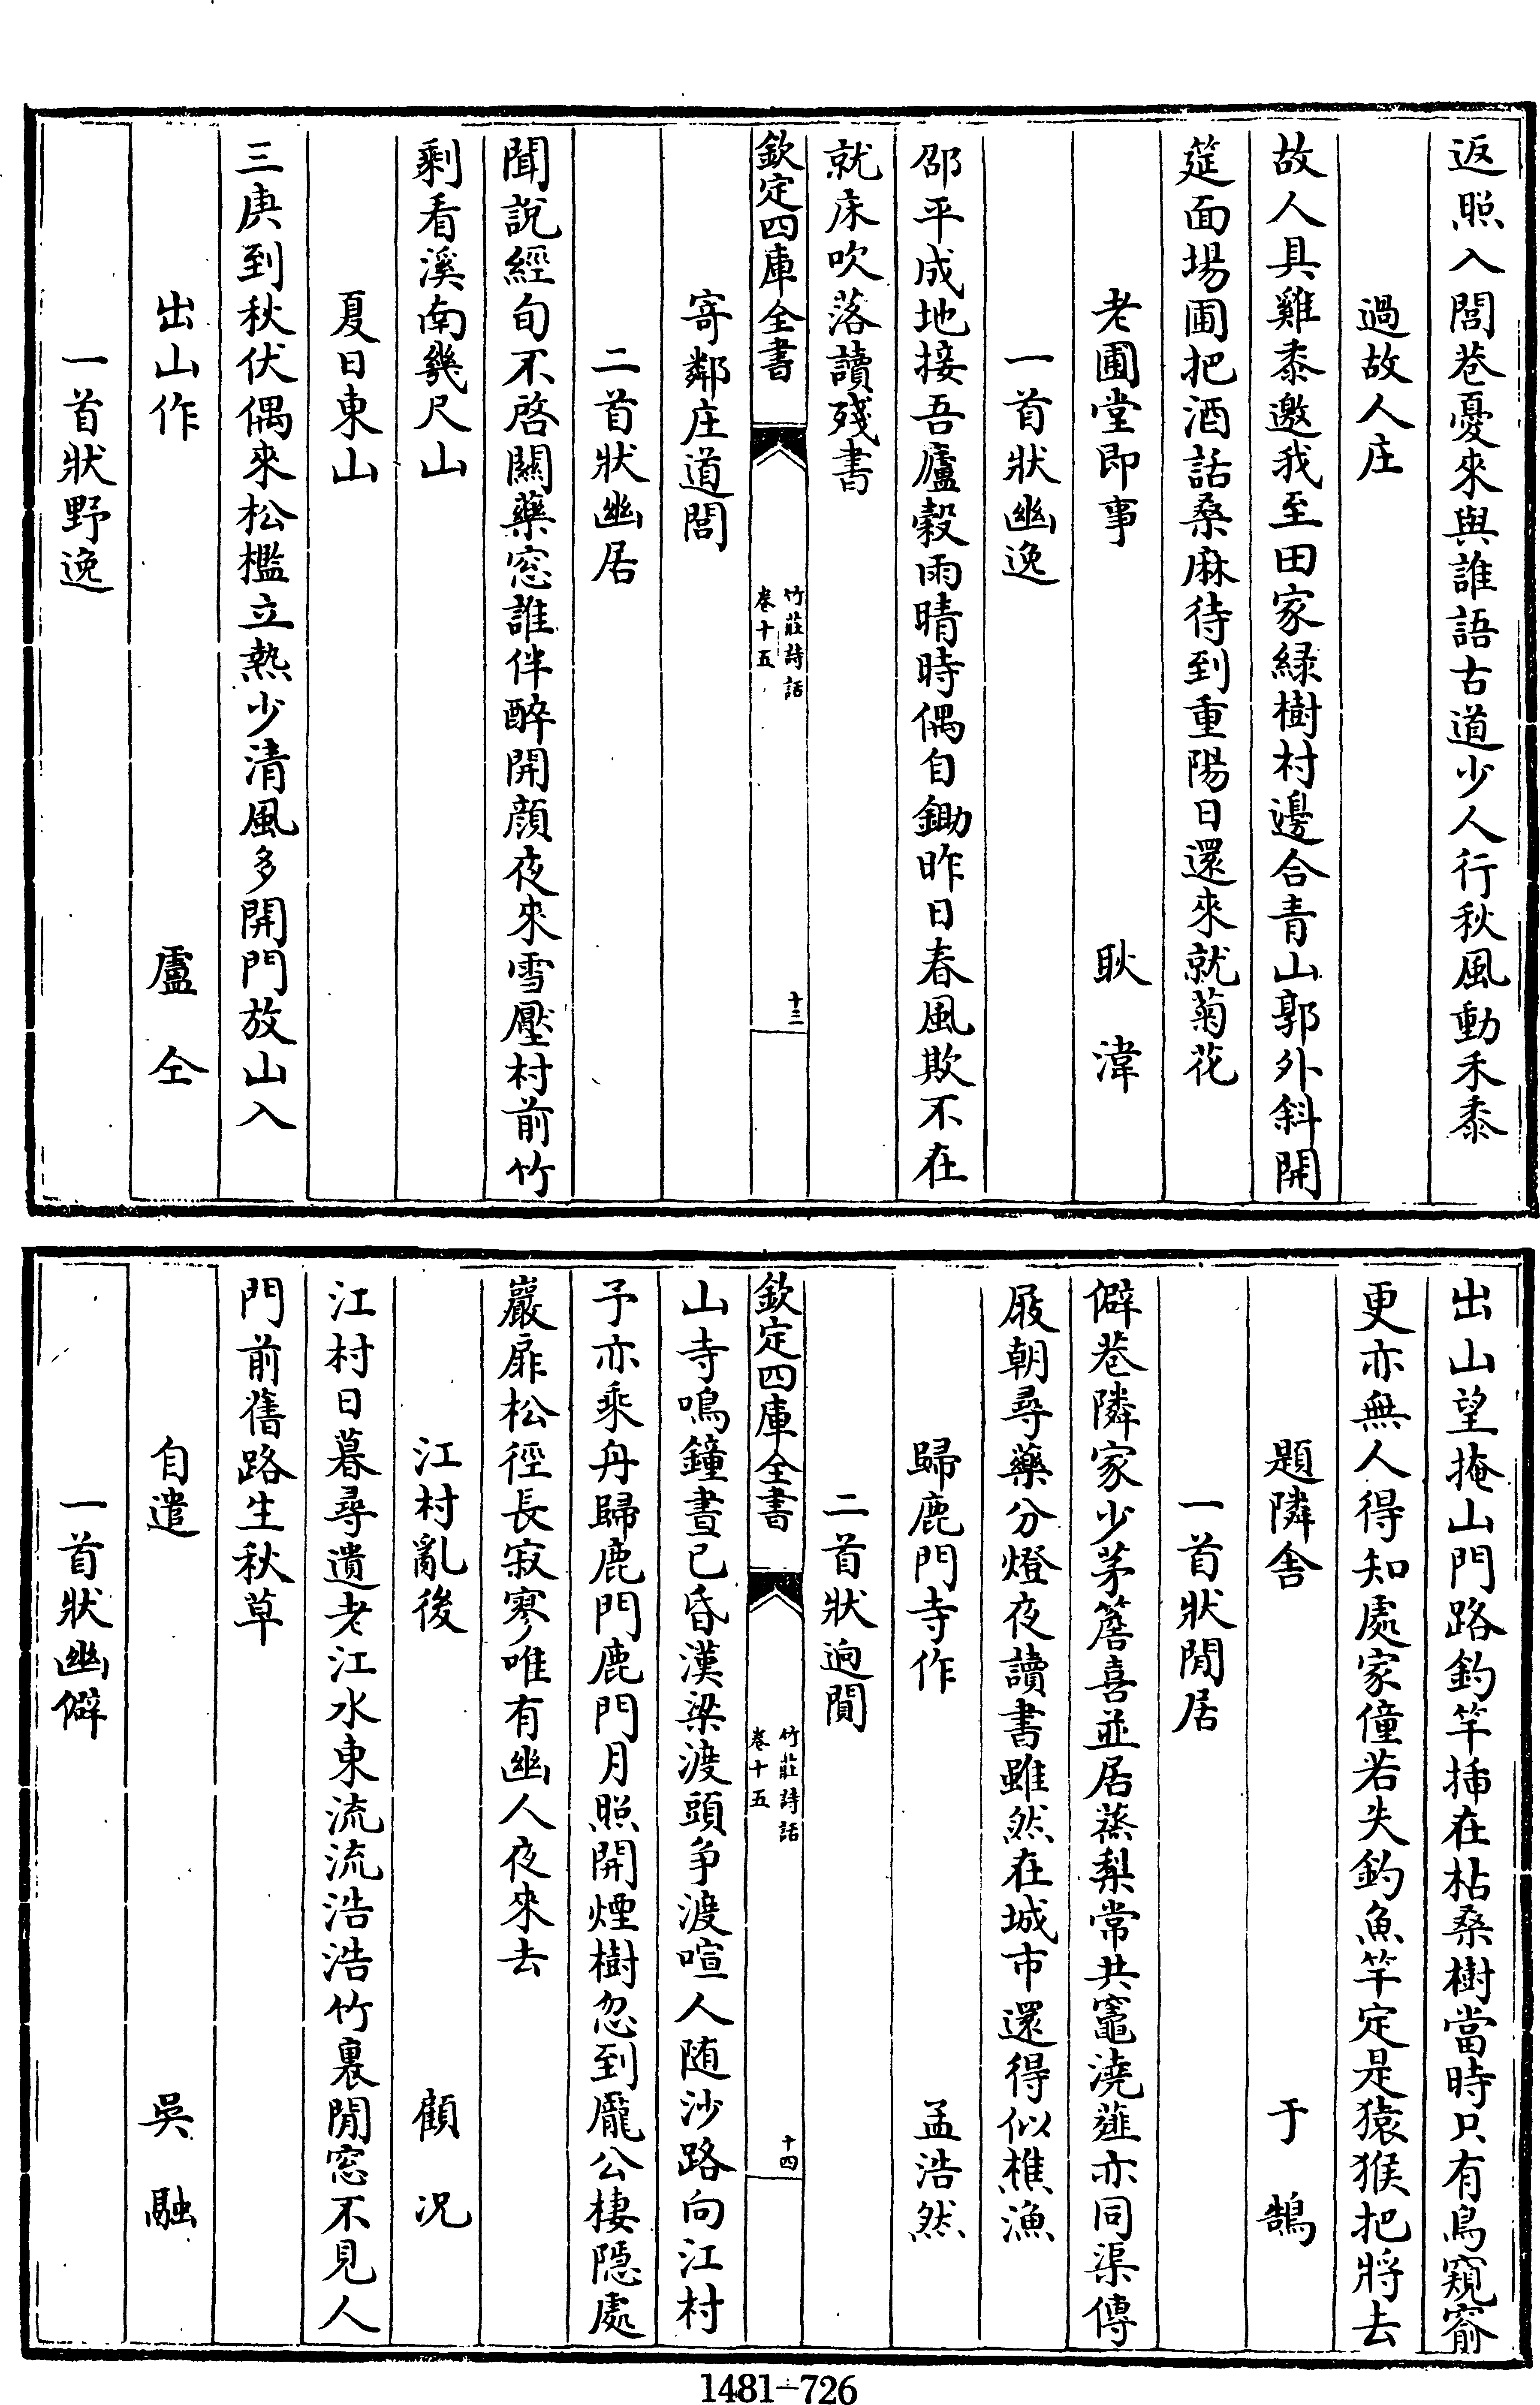 返照入閭巷憂來與誰語古道少人行秋風動禾黍
過故人庄
故人具雞黍邀我至田家緑樹村邊合青山郭外斜開
筵面場圃把酒話桑麻待到重陽日還來就菊花
老圃堂即事 耿湋
一首狀幽逸
邵平成地接吾廬穀雨晴時偶自鋤昨日春風欺不在
就床吹落讀殘書
欽定四庫全書 竹莊詩話 卷十五 十三
寄鄰庄道閭
二首狀幽居
聞說經旬不啓關藥窓誰伴醉開顔夜來雪壓村前竹
剩看溪南幾尺山
夏日東山
三庚到秋伏偶來松檻立熱少清風多開門放山入
出山作 盧仝
一首狀野逸
出山望掩山門路釣竿揷在枯桑樹當時只有鳥窺窬
更亦無人得知處家僮若失釣魚竿定是猿猴把將去
題隣舍 于鵠
一首狀閒居
僻巷隣家少茅簷喜並居蒸梨常共竈澆薤亦同渠傳
屐朝尋藥分燈夜讀書雖然在城市還得似樵漁
歸鹿門寺作 孟浩然
二首狀逈閒
欽定四庫全書 竹莊詩話 卷十五 十四
山寺鳴鐘晝已昏漢梁渡頭争渡喧人随沙路向江村
予亦乘舟歸鹿門鹿門月照開煙樹忽到龐公棲隱處
巖扉松徑長寂寥唯有幽人夜來去
江村亂後 顧况
江村日暮尋遺老江水東流流浩浩竹裏閒窓不見人
門前舊路生秋草
自遣 吳融
一首狀幽僻
1481-726